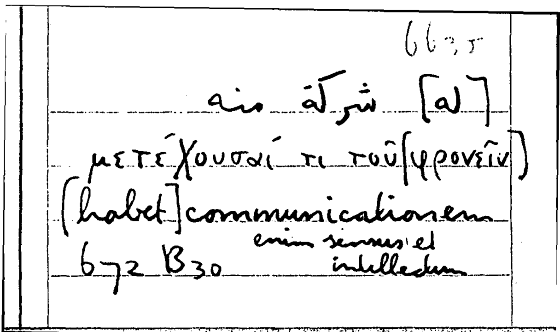 663,5
شركة منه
μετέχουσαί τι τοῦ [φρονεῖν]
[habet] communicationem
enim sensus et
672 B30 intellectum